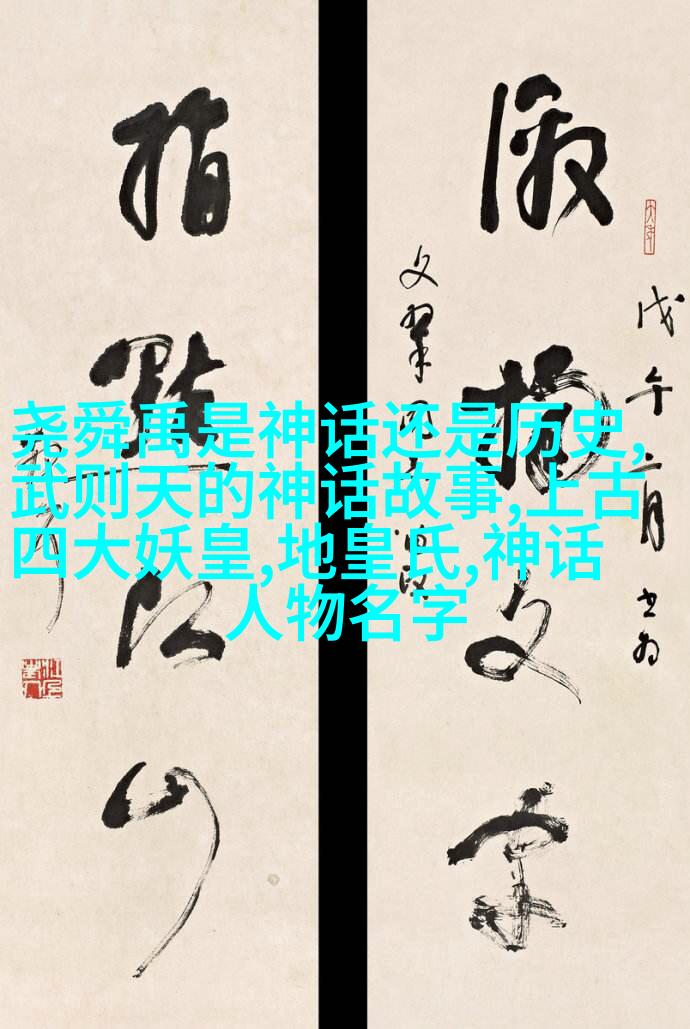 激揚文字
戊午二月书为
指點江山
尧舜禹是神话还是历史,
武则天的神话故事,上古
四大妖皇,地皇氏,神话
人物名字